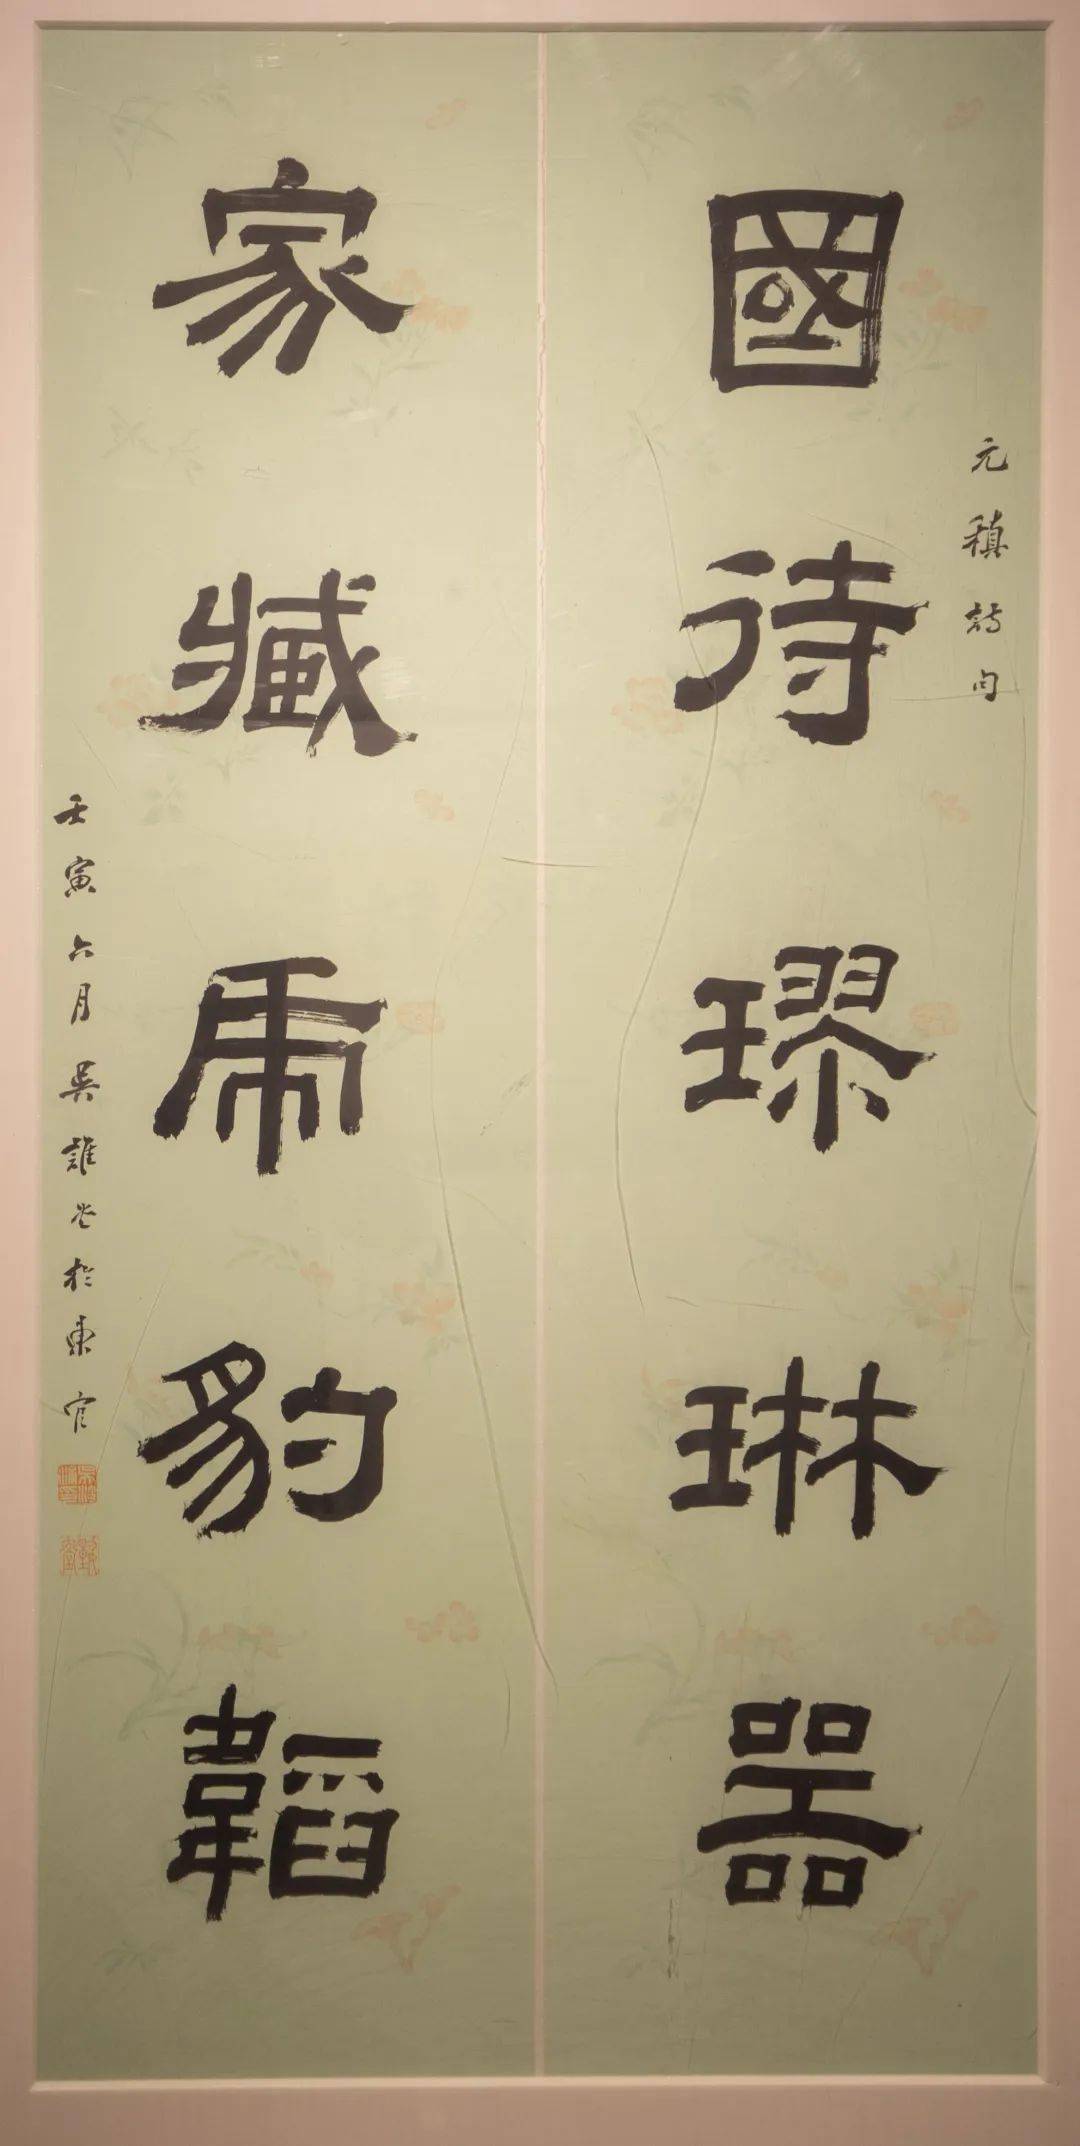 國待璆琳器
元稹詩句
家臧虎豹韜
壬寅六月吳於東官